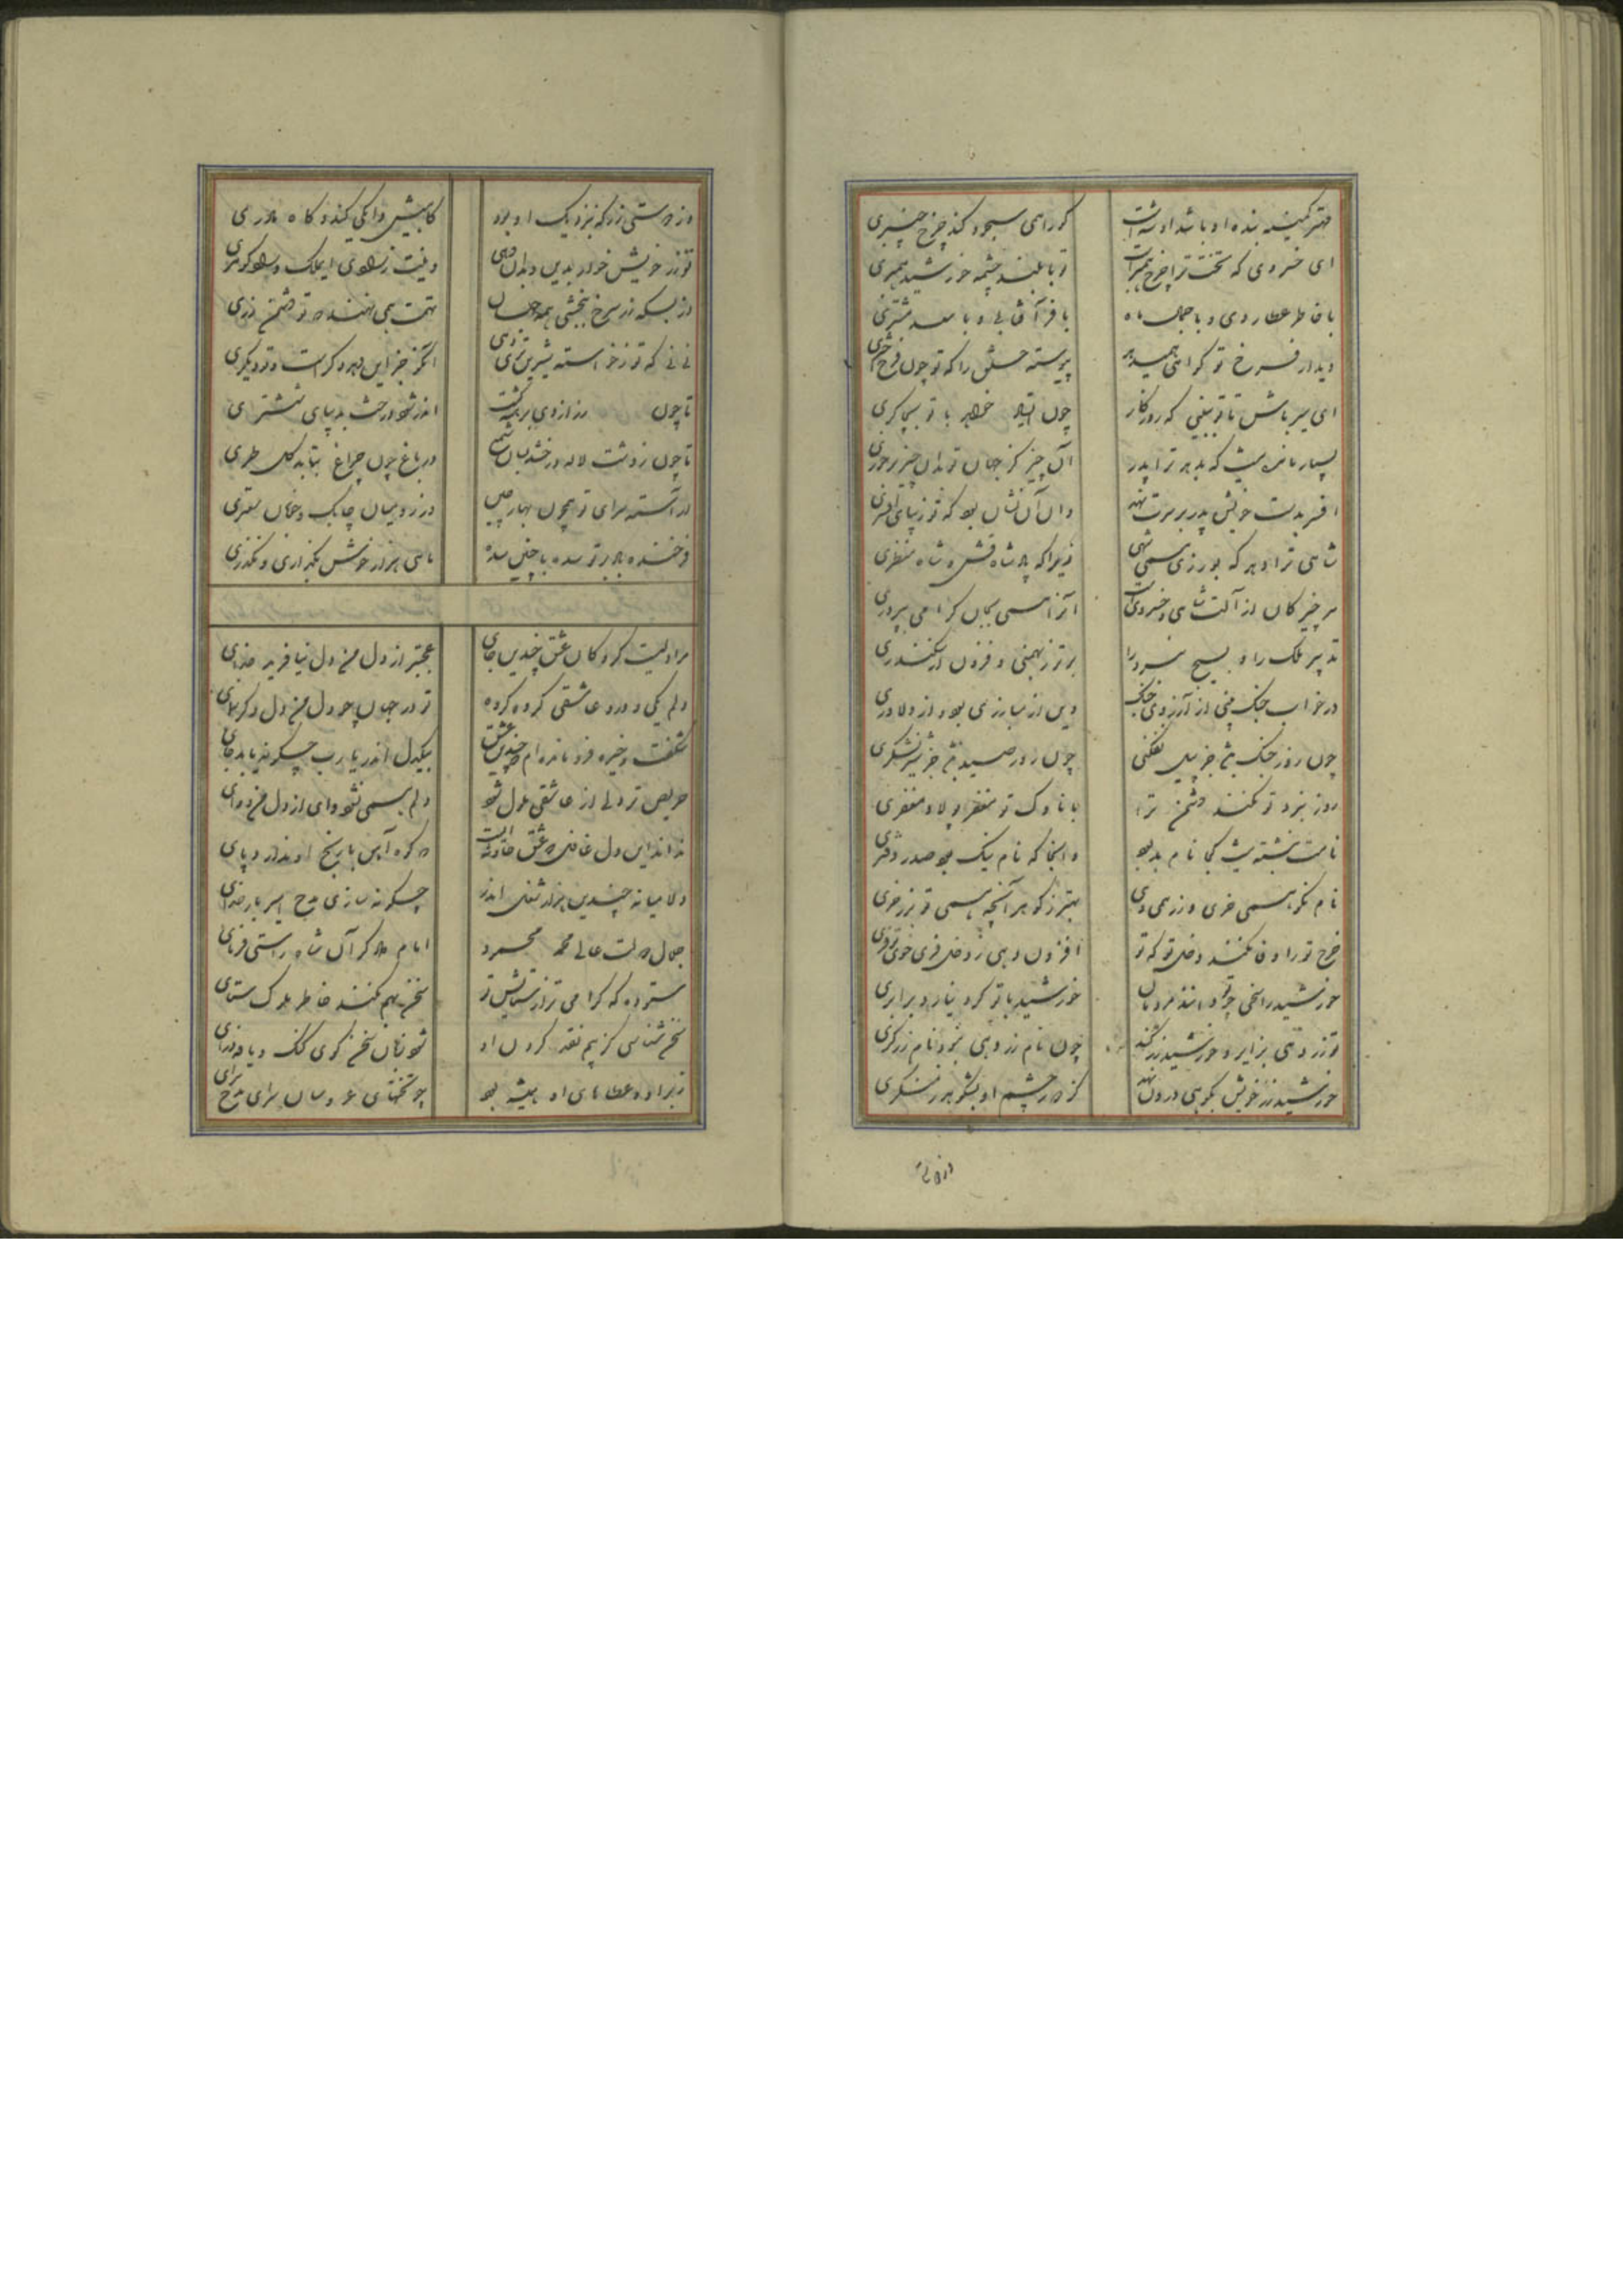 مهتر کمینه بنده او باشد او شه است کو را همی سجود کند چرخ چنبری
ای خسروی که تخت ترا چرخ همبر است تو با بلند چشمه خورشید همبری
با خاطر عطاردی و با جمال ماه با فر آفتابی و با سعد مشتری
دیدار فرخ تو گواهی همیدهد پیوسته خلق را که تو چون فرخ اختری
ای میر باش تا تو ببینی که روزگار چون ایستاد خواهد با تو بچاکری
بسیار مانده نیست که بدهد ترا پدر آن چیز کز جهان تو بدان چیز درخوری
افسر بدست خویش پدر بر سرت نهد وان آن نشان بود که تو زیبای افسری
شاهی ترا دهد که بورزی همی شهی زیرا که پادشاه فش و شاه منظری
هر چیز کان از آلت شاهی و خسرویست آنرا همی بجان گرامی بپروری
تدبیر ملک را و بسیج نبرد را برتر ز بهمنی و فزون از سکندری
در خواب جنگ بینی از آرزوی جنگ وین از مبارزی بود و از دلاوری
چون روز جنگ باشد جز پیل نفکنی چون روز صید باشد جز شیر نشکری
روز نبرد تو نکند دشمن ترا با ناوک تو مغفر پولاد مغفری
نامت نبشته نیست کجا نام بد بود وانجا که نام نیک بود صدر دفتری
نام نکو همی خری و زر همی دهی بهتر ز گوهر آنچه همی تو بزر خری
خرج تو را وفا نکند دخل تو که تو افزون دهی ز دخل
خورشید را سخی چو تو دانند مردمان خورشید با تو کرد نیارد برابری
تو زر دهی بزایر و خورشید زر کند چون نام زر دهی نبود نام زرگری
خورشید زر خویش بکوهی درون نهد کز در چشم او بشکوهد ز منکری
وز دوستی زر که بنزدیک او بود گاهیش دایگی کند و گاه مادری
تو زر خویش خوار بدین و بدان دهی
از بسکه زر سرخ ببخشی همه جهان تهمت همی نهند که تو دشمن زری
نی نی که تو ز خواسته شیرین تری
تا چون اندر شود درخت بدیبای ششتری
تا چون ز دشت لاله درخشد میان شمع در باغ چون چراغ بتابد گل طری
آراسته سرای تو همچون بهار چین
فرخنده باد بر تو سده با چنین سده ماهی هزار خوش بگذاری و نگذری
مرا دلیست گروگان عشق چندین جای عجبتر از دل من دل نیافریده خدای
دلم یکی و درو عاشقی گروه گروه تو در جهان چو دل من دلی دگر بنمای
شگفت و خیره فرو مانده ام که چندین عشق بیکدل اندر یارب چگونه یابد جای
حریص تر دلی از عاشقی ملول شود دلم همی نشود وای از دل من وای
نداند این دل غافل که عشق حادثه ایست که کوه آهن با رنج او ندارد پای
دلا میانه چندین هزار شغل اندر چگونه سازی مدح امیر بار خدای
جلال دولت عالی محمد محمود امام دادگر آن شاه راستی فرمای
ستوده که گرامی تر از ستایش تو سخن بهم نکند خاطر ملوک ستای
سخن شناسی کز بیم نقد کردن او شود زبان سخن گوی گنگ و یافه درای
ز بر او و عطاهای او همیشه بود چو تختهای عروسان سرای مدح سرای